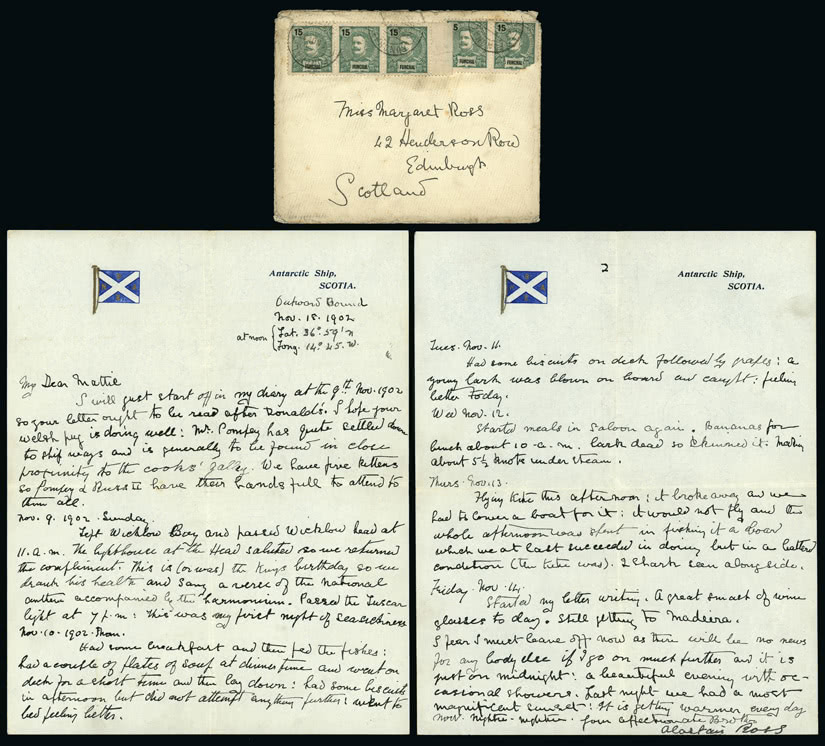 15 15 15 5 15
FUNCHAL FUNCHAL FUNCHAL FUNCHAL FUNCHAL
Miss Margaret Ross
42 Henderson Row
Edinburgh
Scotland
Antarctic Ship,
SCOTIA.
Outward Bound
Nov. 18. 1902
at noon { Lat. 36° 59' n
Long. 14° 45. W.
My Dear Mattie
I will just start off in my diary at the 9th Nov. 1902
so your letter ought to be read after Ronald's. I hope your
welsh pug is doing well: Mrs. Pompey has quite settled down
to ship ways and is generally to be found in close
proximity to the cooks' galley. We have five kittens
so Pompey & Russ have their hands full to attend to
them all.
Nov. 9. 1902. Sunday.
Left Wicklow Bay and passed Wicklow head at
11. a. m. The lighthouse at the Head saluted so we returned
the compliment. This is (or was) the Kings birthday so we
drank his health and sang a verse of the national
anthem accompanied by the harmonium. Passed the Tuscar
light at 7 p. m: This was my first night of seasickness
Nov. 10. 1902.
Had some breakfast and then fed the fishes:
had a couple of plates of soup at dinner time and went on
deck for a short time and then lay down: had some biscuits
in afternoon but did not attempt anything further: went to
bed feeling better.
2
Antarctic Ship,
SCOTIA.
Tues. Nov. 11.
Had some biscuits on deck followed by grapes: a
young lark was blown on board and caught: feeling
better today.
Wed Nov. 12.
Started meals in Saloon again. Bananas for
lunch about 10. a. m. lark dead so I skinned it. Making
about 5½ knots under steam.
Thurs. Nov. 13.
Flying Kite this afternoon: it broke away and we
had to lower a boat for it: it would not fly and the
whole afternoon was spent in fishing it a boar
which we at last succeeded in doing but in a battered
condition (the kite was). 2 Shark seen alongside.
Friday. Nov. 14.
Started my letter writing. A great smash of wine
glasses to day. Still getting to Madeira.
I fear I must leave off now as there will be no news
for any body else if I go on much further and it is
just on midnight: a beautiful evening with oc-
casional showers. Last night we had a most
magnificent sunset: It is getting warmer every day
now. nightie-nightie. Your affectionate Brother
Alastair Ross